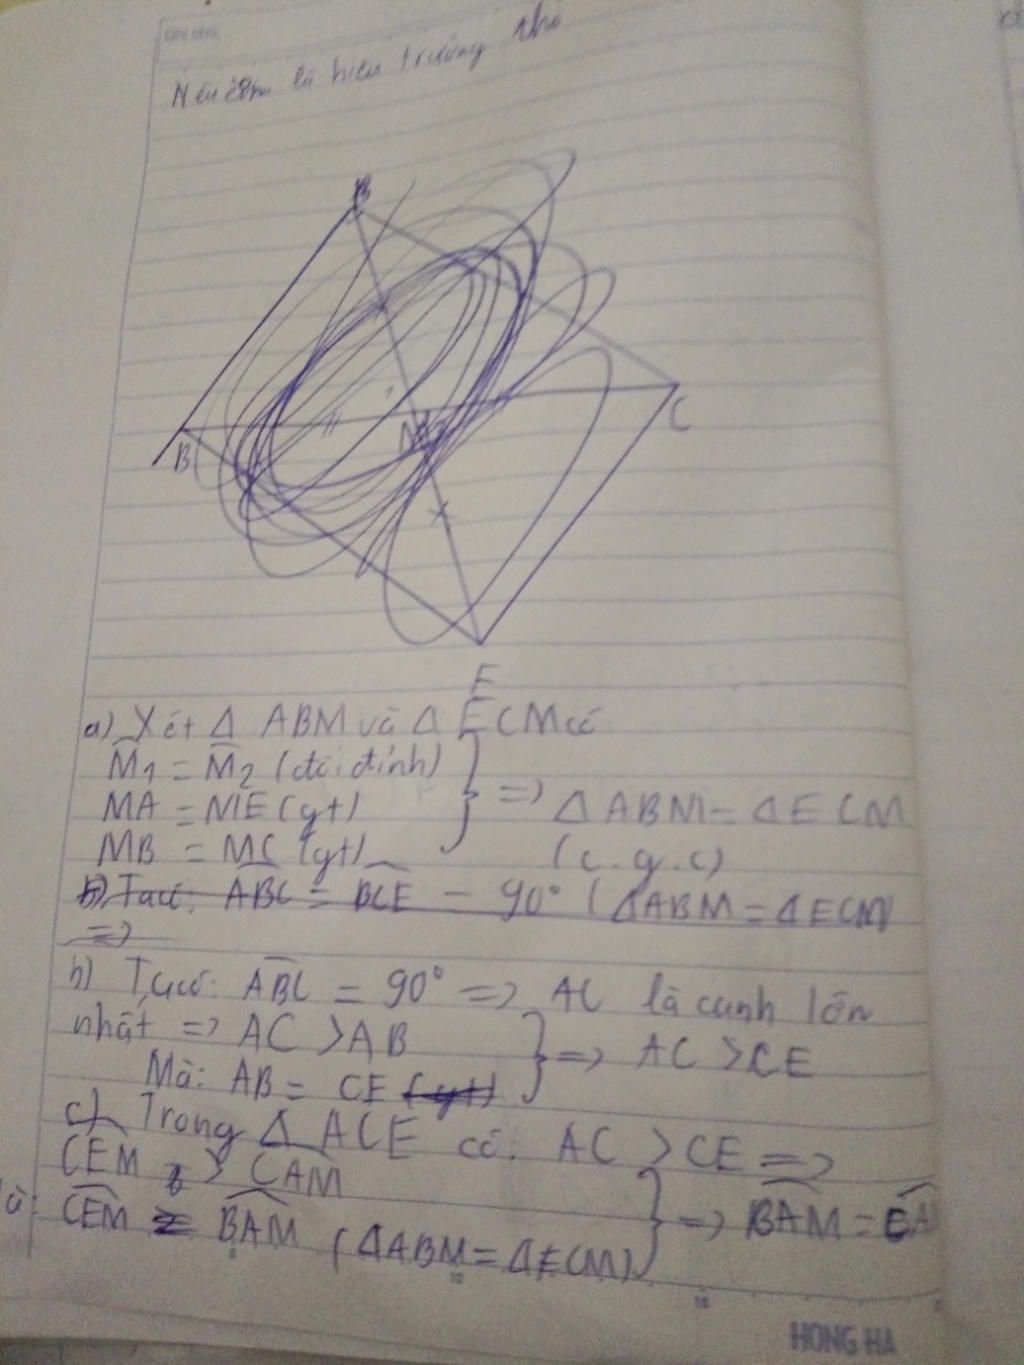 Nếu em là hiệu trưởng thì
B
B
M
C
E
a) Xét Δ ABM và Δ ECM có
M1 = M2 (đối đỉnh)
MA = ME (gt) } => Δ ABM = Δ ECM
MB = MC (gt) (c.g.c)
b) Ta có: ABC = BCE = 90° (ΔABM = ΔECM)
=>
b) Ta có: ABC = 90° => AC là cạnh lớn
nhất => AC > AB
Mà: AB = CE (gt) } => AC > CE
c) Trong Δ ACE có: AC > CE =>
CEM > CAM
CEM = BAM (ΔABM = ΔECM) } => BAM =
HONG HA